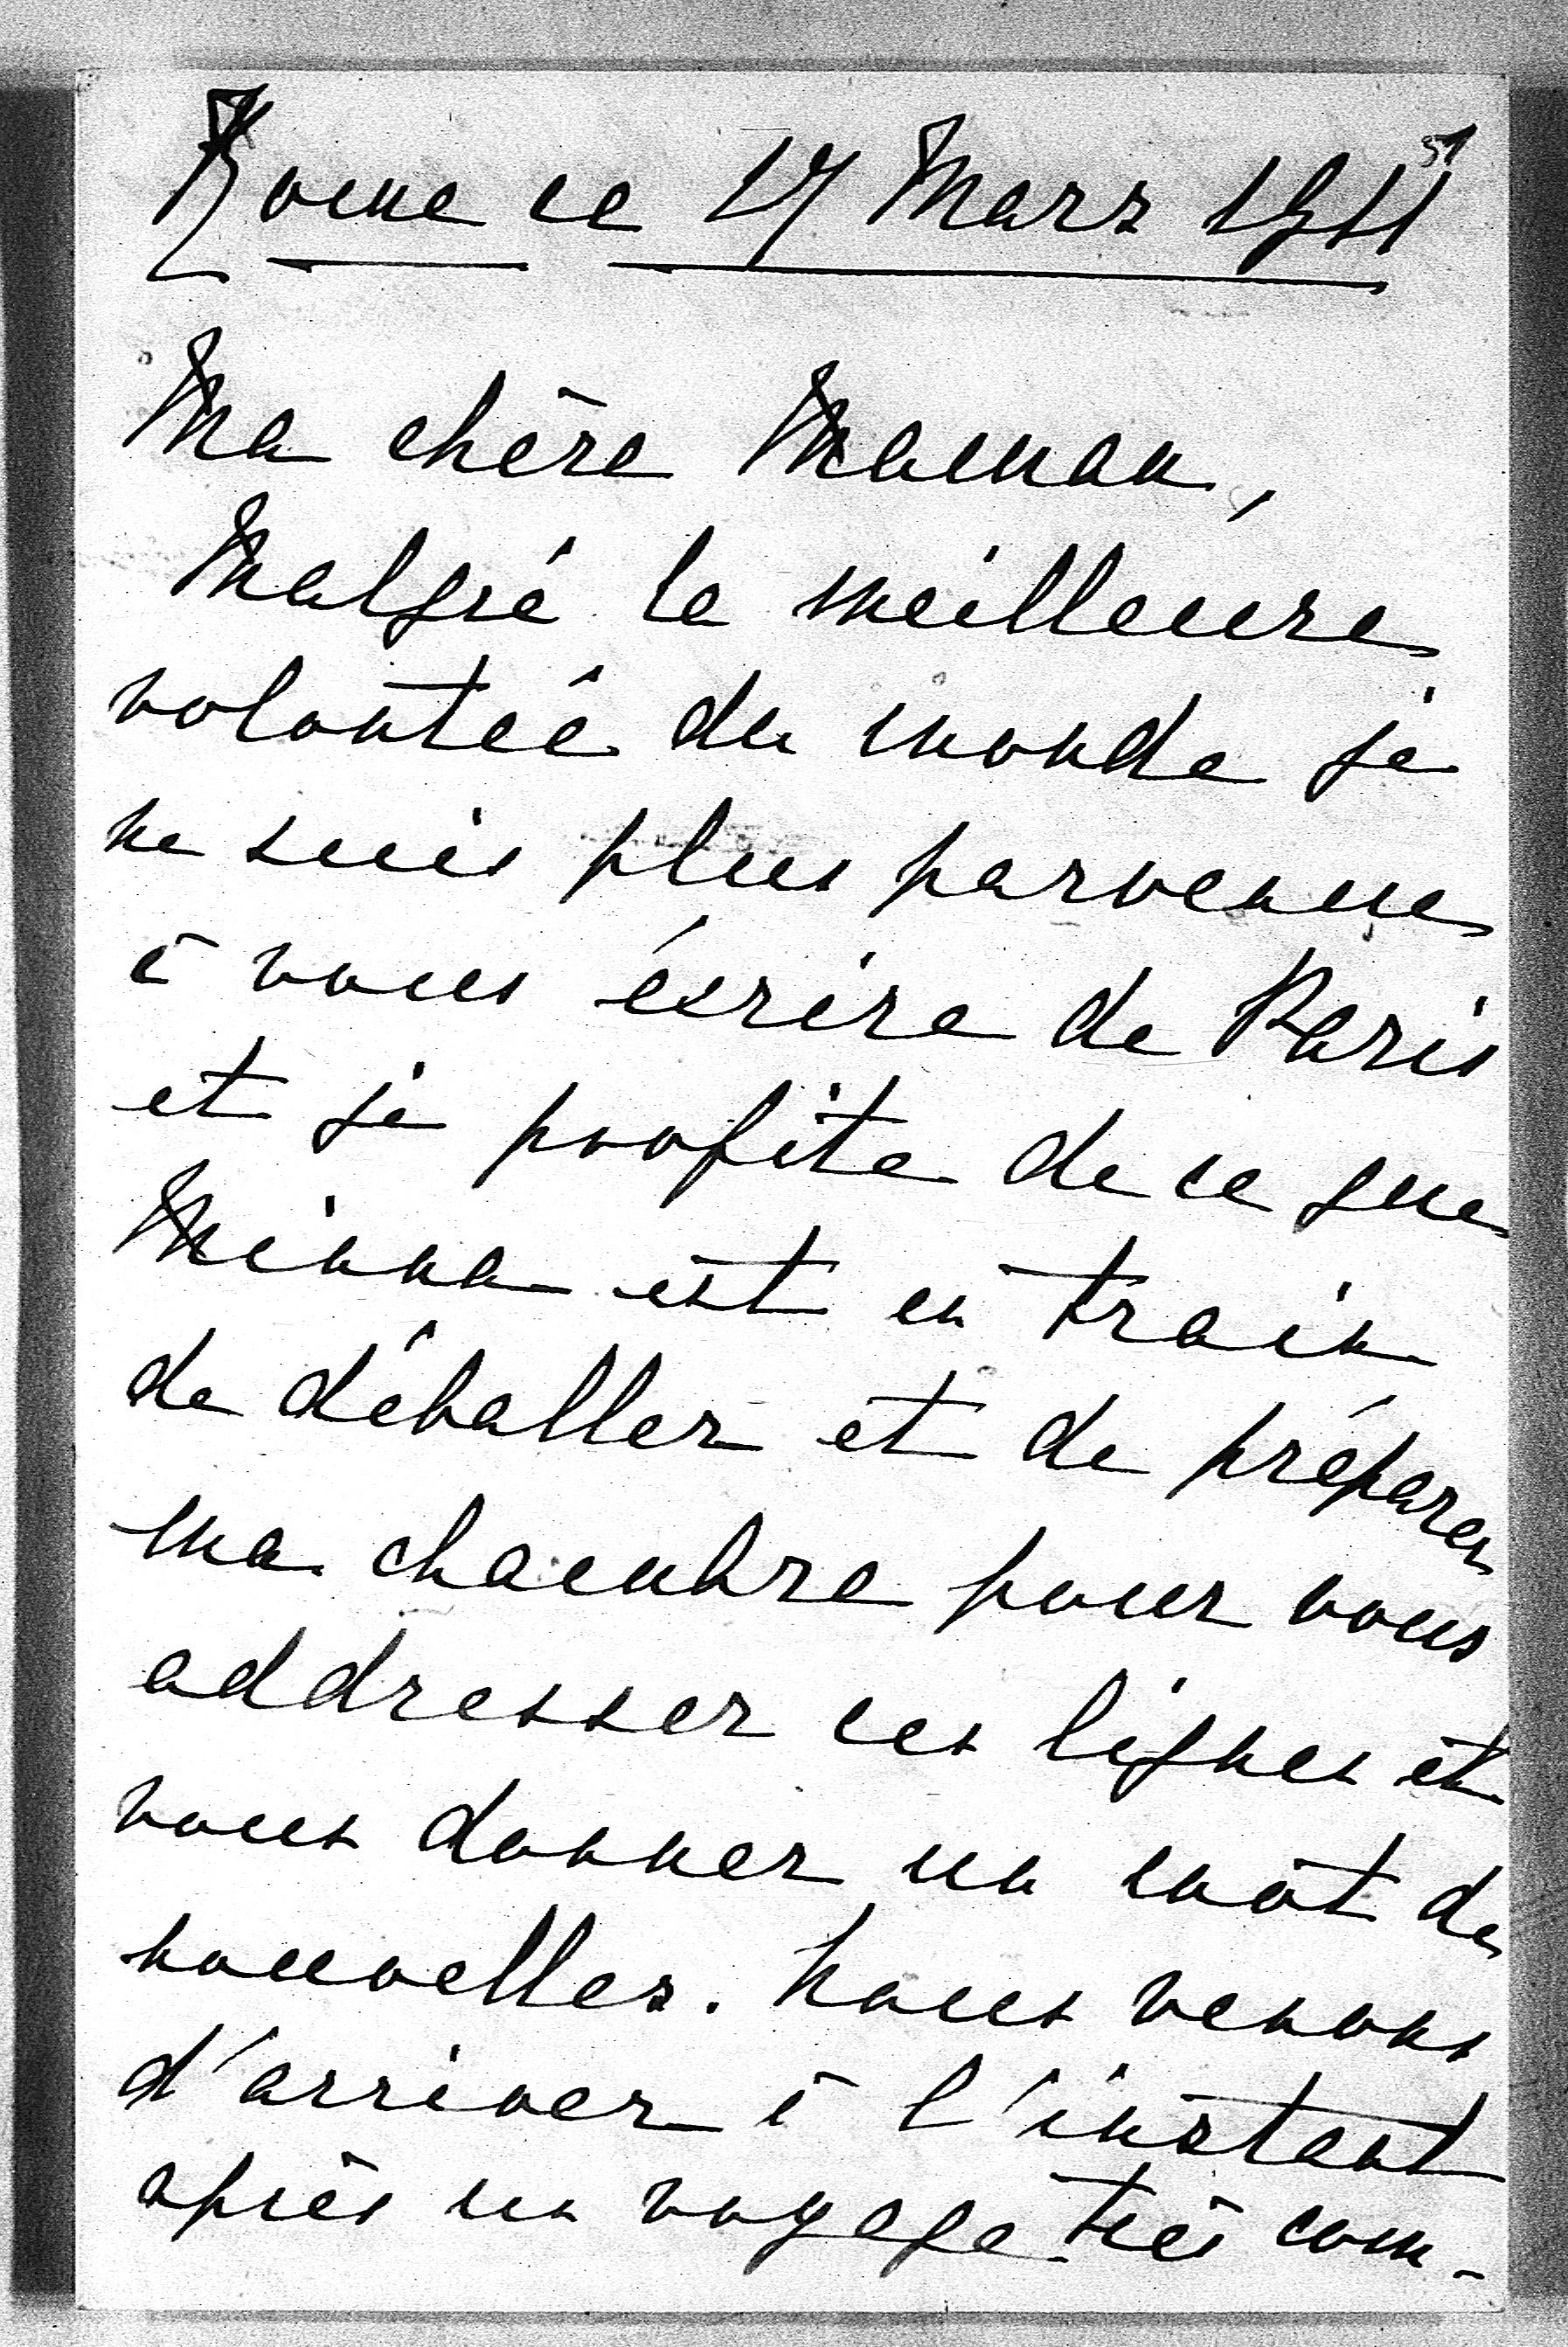 Rome ce 17 Mars 1911
51
Ma chère Maman,
Malgré la meilleure
volontée du monde je
ne suis plus parvenue
à vous écrire de Paris
et je profite de ce que
Minna est en train
de déballer et de préparer
ma chambre pour vous
addresser ces lignes et
vous donner un mot de
nouvelles. Nous venons
d'arriver à l'instant
après un voyage très com-